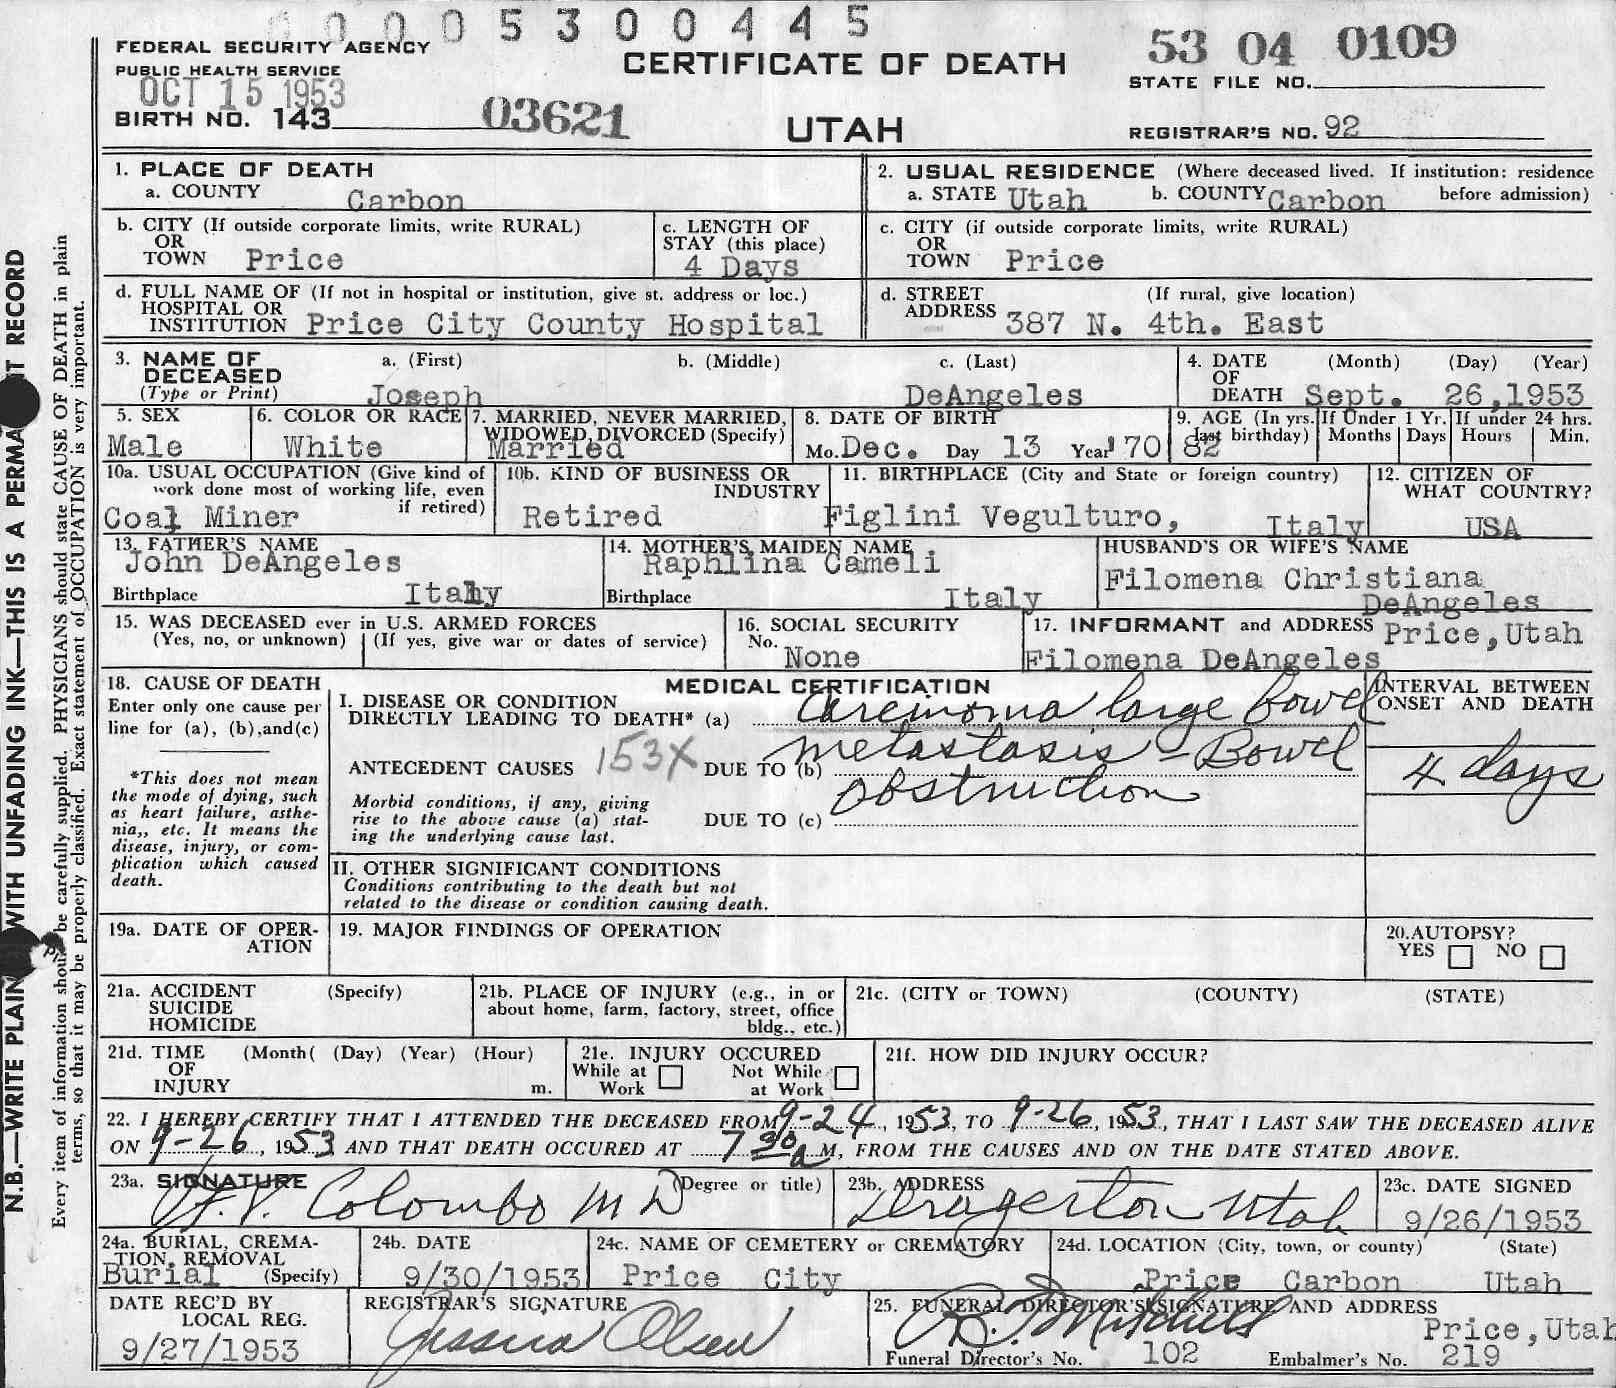 0 0 0 0 5 3 0 0 4 4 5
FEDERAL SECURITY AGENCY
PUBLIC HEALTH SERVICE
OCT 15 1953
BIRTH NO. 143
03621
CERTIFICATE OF DEATH
UTAH
53 04 0109
STATE FILE NO.
REGISTRAR'S NO. 92
1. PLACE OF DEATH
a. COUNTY Carbon
2. USUAL RESIDENCE (Where deceased lived. If institution: residence before admission)
a. STATE Utah b. COUNTY Carbon
b. CITY (If outside corporate limits, write RURAL)
OR
TOWN Price
c. LENGTH OF
STAY (this place)
4 Days
c. CITY (if outside corporate limits, write RURAL)
OR
TOWN Price
d. FULL NAME OF (If not in hospital or institution, give st. address or loc.)
HOSPITAL OR
INSTITUTION Price City County Hospital
d. STREET (If rural, give location)
ADDRESS 387 N. 4th. East
3. NAME OF a. (First) b. (Middle) c. (Last)
DECEASED
(Type or Print) Joseph DeAngeles
4. DATE (Month) (Day) (Year)
OF
DEATH Sept. 26,1953
5. SEX
Male
6. COLOR OR RACE
White
7. MARRIED, NEVER MARRIED,
WIDOWED, DIVORCED (Specify)
Married
8. DATE OF BIRTH
Mo. Dec. Day 13 Year '70
9. AGE (In yrs.
last birthday)
82
If Under 1 Yr.
Months Days
If under 24 hrs.
Hours Min.
10a. USUAL OCCUPATION (Give kind of
work done most of working life, even
if retired)
Coal Miner
10b. KIND OF BUSINESS OR
INDUSTRY
Retired
11. BIRTHPLACE (City and State or foreign country)
Figlini Vegulturo, Italy
12. CITIZEN OF
WHAT COUNTRY?
USA
13. FATHER'S NAME
John DeAngeles
Birthplace Italy
14. MOTHER'S MAIDEN NAME
Raphlina Cameli
Birthplace Italy
HUSBAND'S OR WIFE'S NAME
Filomena Christiana
DeAngeles
15. WAS DECEASED ever in U.S. ARMED FORCES
(Yes, no, or unknown) (If yes, give war or dates of service)
16. SOCIAL SECURITY
No.
None
17. INFORMANT and ADDRESS Price,Utah
Filomena DeAngeles
18. CAUSE OF DEATH
Enter only one cause per
line for (a), (b),and(c)
*This does not mean
the mode of dying, such
as heart failure, asthe-
nia,, etc. It means the
disease, injury, or com-
plication which caused
death.
MEDICAL CERTIFICATION
I. DISEASE OR CONDITION
DIRECTLY LEADING TO DEATH* (a) Carcinoma large bowel
ANTECEDENT CAUSES 153X DUE TO (b) metastasis - Bowel
obstruction
Morbid conditions, if any, giving
rise to the above cause (a) stat-
ing the underlying cause last.
DUE TO (c)
INTERVAL BETWEEN
ONSET AND DEATH
4 days
II. OTHER SIGNIFICANT CONDITIONS
Conditions contributing to the death but not
related to the disease or condition causing death.
19a. DATE OF OPER-
ATION
19. MAJOR FINDINGS OF OPERATION
20.AUTOPSY?
YES NO
21a. ACCIDENT (Specify)
SUICIDE
HOMICIDE
21b. PLACE OF INJURY (e.g., in or
about home, farm, factory, street, office
bldg., etc.)
21c. (CITY or TOWN) (COUNTY) (STATE)
21d. TIME (Month( (Day) (Year) (Hour)
OF
INJURY m.
21e. INJURY OCCURED
While at Not While
Work at Work
21f. HOW DID INJURY OCCUR?
22. I HEREBY CERTIFY THAT I ATTENDED THE DECEASED FROM 9-24, 1953, TO 9-26, 1953, THAT I LAST SAW THE DECEASED ALIVE
ON 9-26, 1953 AND THAT DEATH OCCURED AT 7 30 a M, FROM THE CAUSES AND ON THE DATE STATED ABOVE.
23a. SIGNATURE (Degree or title)
Colombo M D
23b. ADDRESS
Dragerton Utah
23c. DATE SIGNED
9/26/1953
24a. BURIAL, CREMA-
TION, REMOVAL
Burial (Specify)
24b. DATE
9/30/1953
24c. NAME OF CEMETERY or CREMATORY
Price City
24d. LOCATION (City, town, or county) (State)
Price Carbon Utah
DATE REC'D BY
LOCAL REG.
9/27/1953
REGISTRAR'S SIGNATURE
Olsen
25. FUNERAL DIRECTOR'S SIGNATURE AND ADDRESS
Mitchell
Price,Utah
Funeral Director's No. 102 Embalmer's No. 219
N.B.—WRITE PLAIN WITH UNFADING INK—THIS IS A PERMA T RECORD
Every item of information should be carefully supplied. PHYSICIANS should state CAUSE OF DEATH in plain
terms, so that it may be properly classified. Exact statement of OCCUPATION is very important.